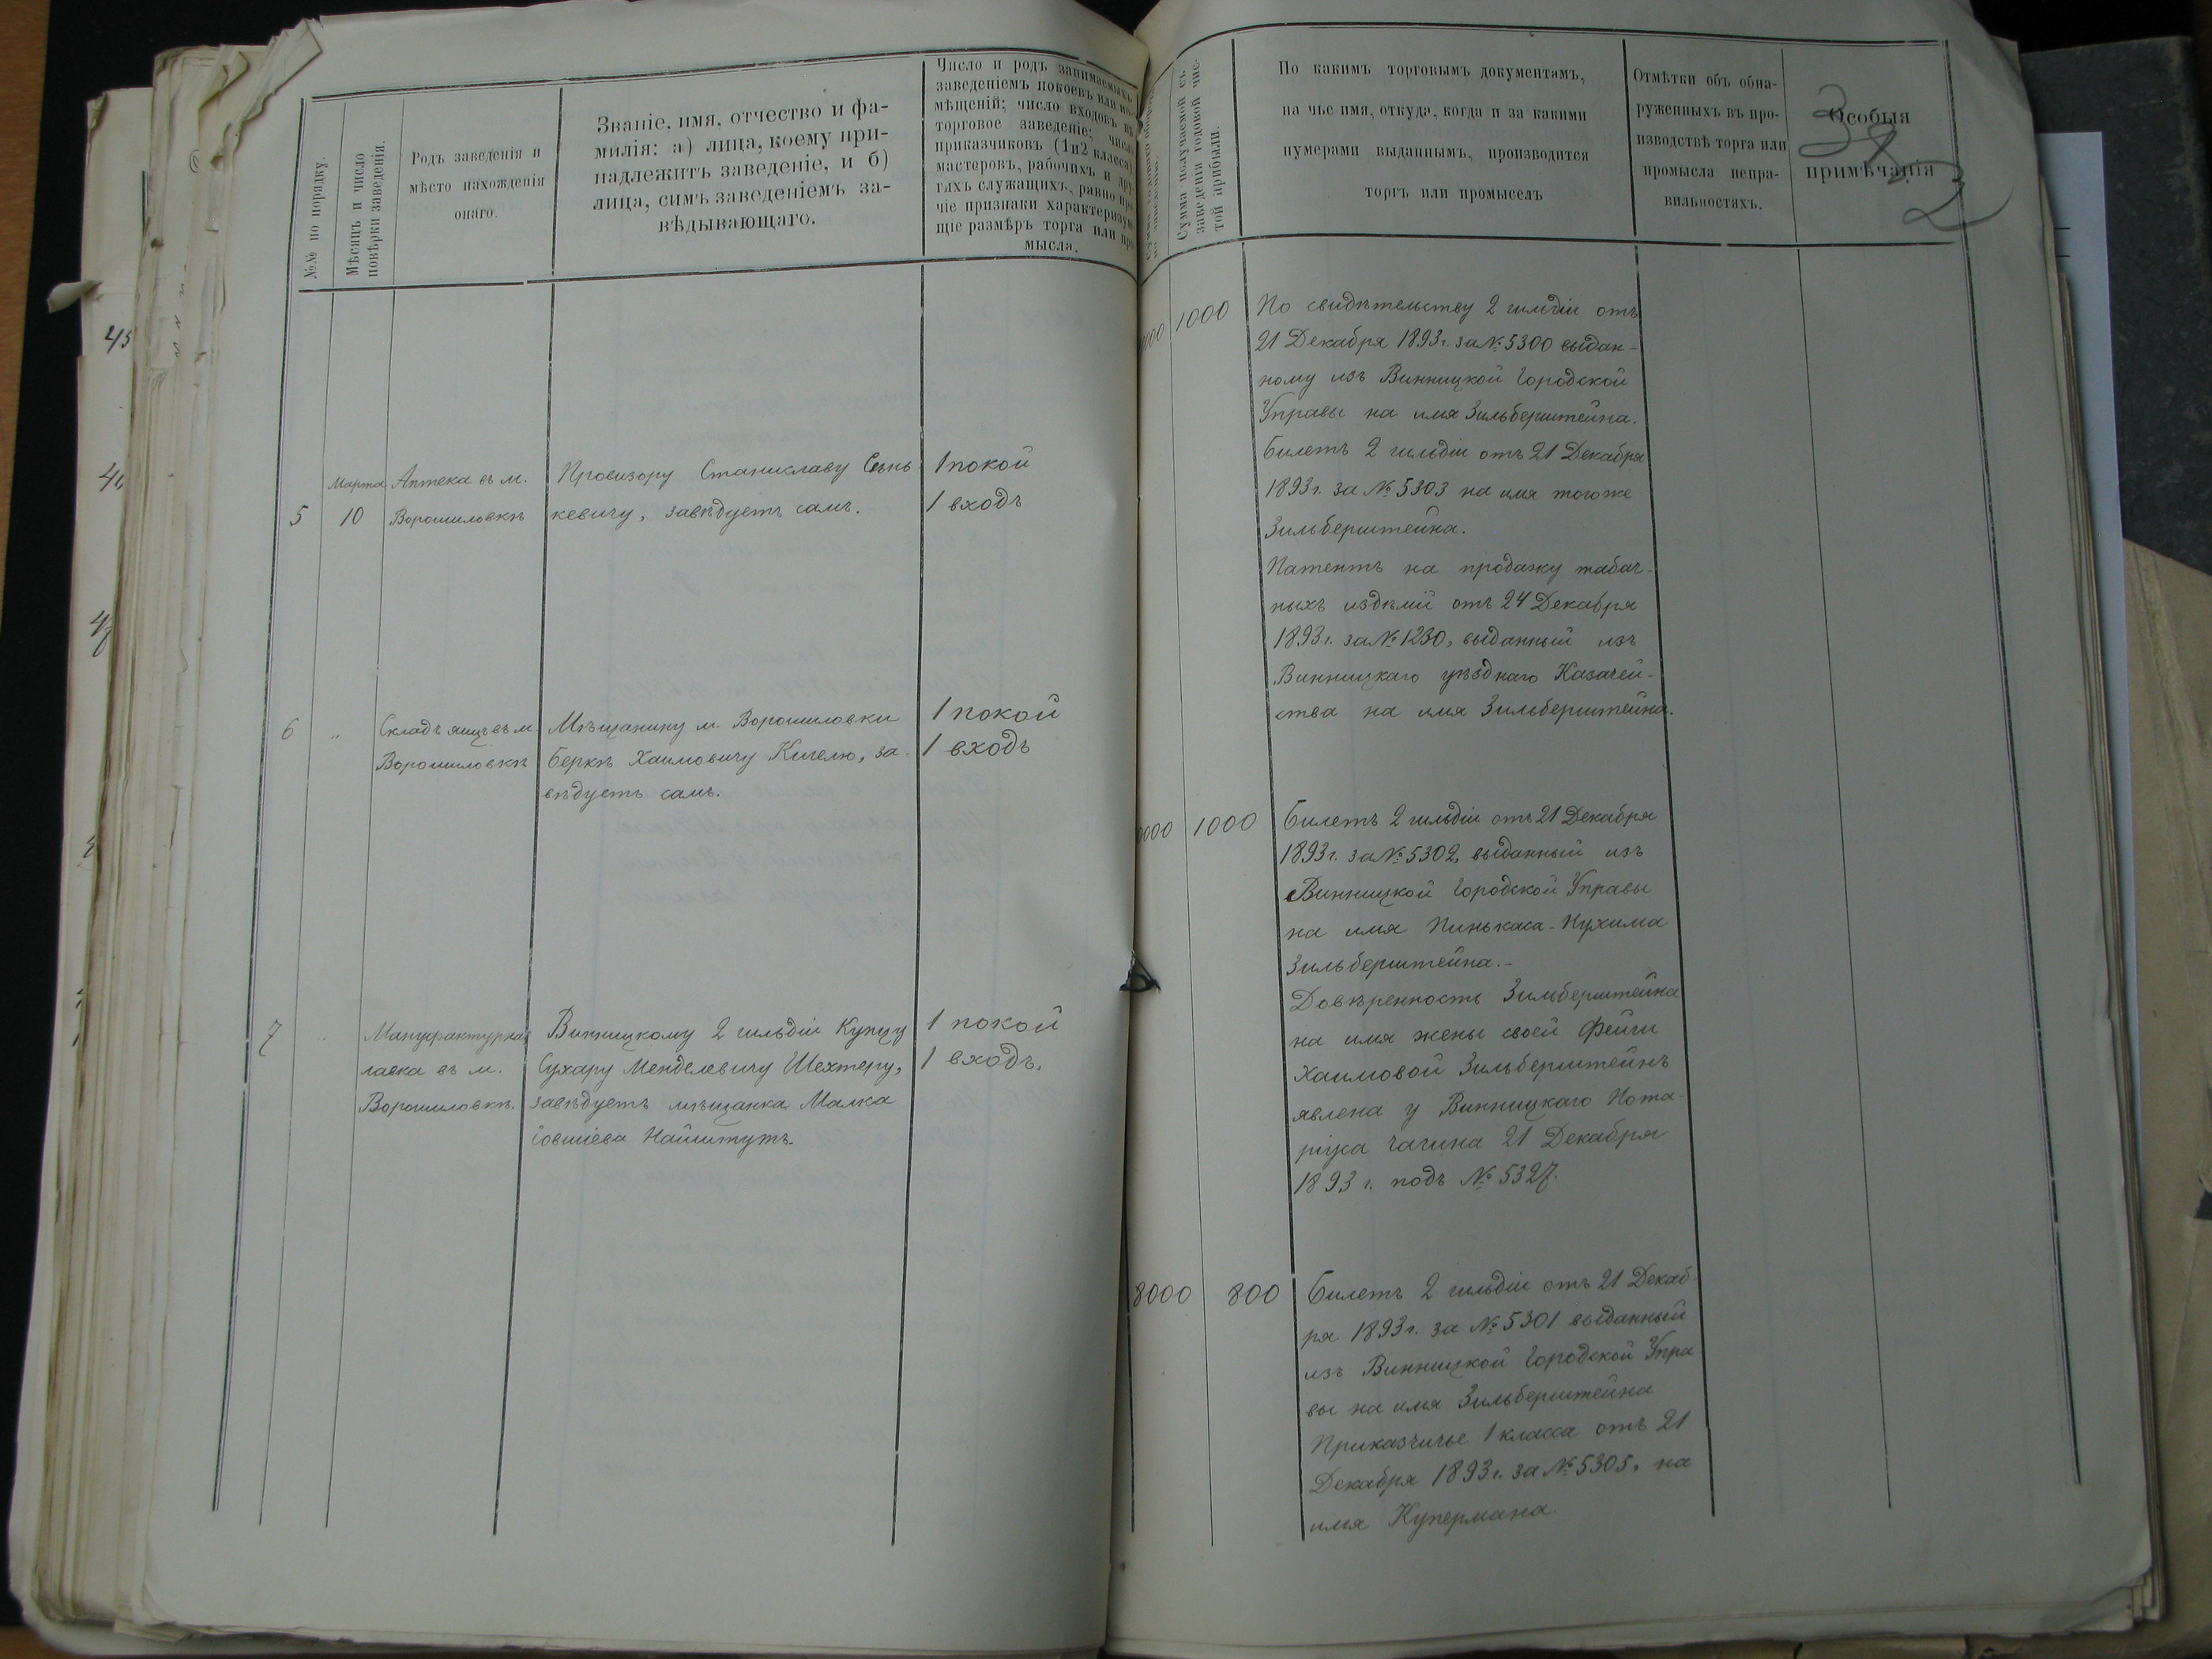 №№ по порядку.
Мѣсяцъ и число
повѣрки заведенія.
Родъ заведенія и
мѣсто нахожденія
онаго.
Званіе, имя, отчество и фа-
милія: а) лица, коему при-
надлежитъ заведеніе, и б)
лица, симъ заведеніемъ за-
вѣдывающаго.
Число и родъ занимаемыхъ
заведеніемъ покоевъ или по-
мѣщеній; число входовъ въ
торговое заведеніе; число
приказчиковъ (1 и 2 класса),
мастеровъ, рабочихъ и дру-
гихъ служащихъ, равно про-
чіе признаки характеризую-
щіе размѣръ торга или про-
мысла.
5
Марта
10
Аптека въ м.
Ворошиловкѣ
Провизору Станиславу Сень
кевичу, завѣдуетъ самъ.
1 покой
1 входъ
6
"
Складъ яицъ въ м.
Ворошиловкѣ
Мѣщанину м. Ворошиловки
Беркѣ Хаимовичу Кигелю, за-
вѣдуетъ самъ.
1 покой
1 входъ
7
Мануфактурная
лавка въ м.
Ворошиловкѣ.
Винницкому 2 гильдіи Купцу
Сухару Менделевичу Шехтеру,
завѣдуетъ мѣщанка Малка
Іовшіева Найштутъ.
1 покой
1 входъ.
Сумма получаемой съ
заведенія годовой чис-
той прибыли.
По какимъ торговымъ документамъ,
на чье имя, откуда, когда и за какими
нумерами выданнымъ, производится
торгъ или промыселъ
Отмѣтки объ обна-
руженныхъ въ про-
изводствѣ торга или
промысла непра-
вильностяхъ.
Особыя
примѣчанія
1000
По свидѣтельству 2 гильдіи отъ
21 Декабря 1893 г. за № 5300 выдан-
ному изъ Винницкой Городской
Управы на имя Зильберштейна.
Билетъ 2 гильдіи отъ 21 Декабря
1893 г. за № 5303 на имя тогоже
Зильберштейна.
Патентъ на продажу табач-
ныхъ издѣлій отъ 24 Декабря
1893 г. за № 1230, выданный изъ
Винницкаго уѣзднаго Казачей-
ства на имя Зильберштейна.
1000
Билетъ 2 гильдіи отъ 21 Декабря
1893 г. за № 5302, выданный изъ
Винницкой Городской Управы
на имя Пинькаса-Нухима
Зильберштейна.-
Довѣренность Зильберштейна
на имя жены своей Фейги
Хаимовой Зильберштейнъ
явлена у Винницкаго Нота-
ріуса Чагина 21 Декабря
1893 г. подъ № 5327.
8000
800
Билетъ 2 гильдіи отъ 21 Декаб
ря 1893 г. за № 5301 выданный
изъ Винницкой Городской Упра
вы на имя Зильберштейна
Приказчичье 1 класса отъ 21
Декабря 1893 г. за № 5305, на
имя Купермана